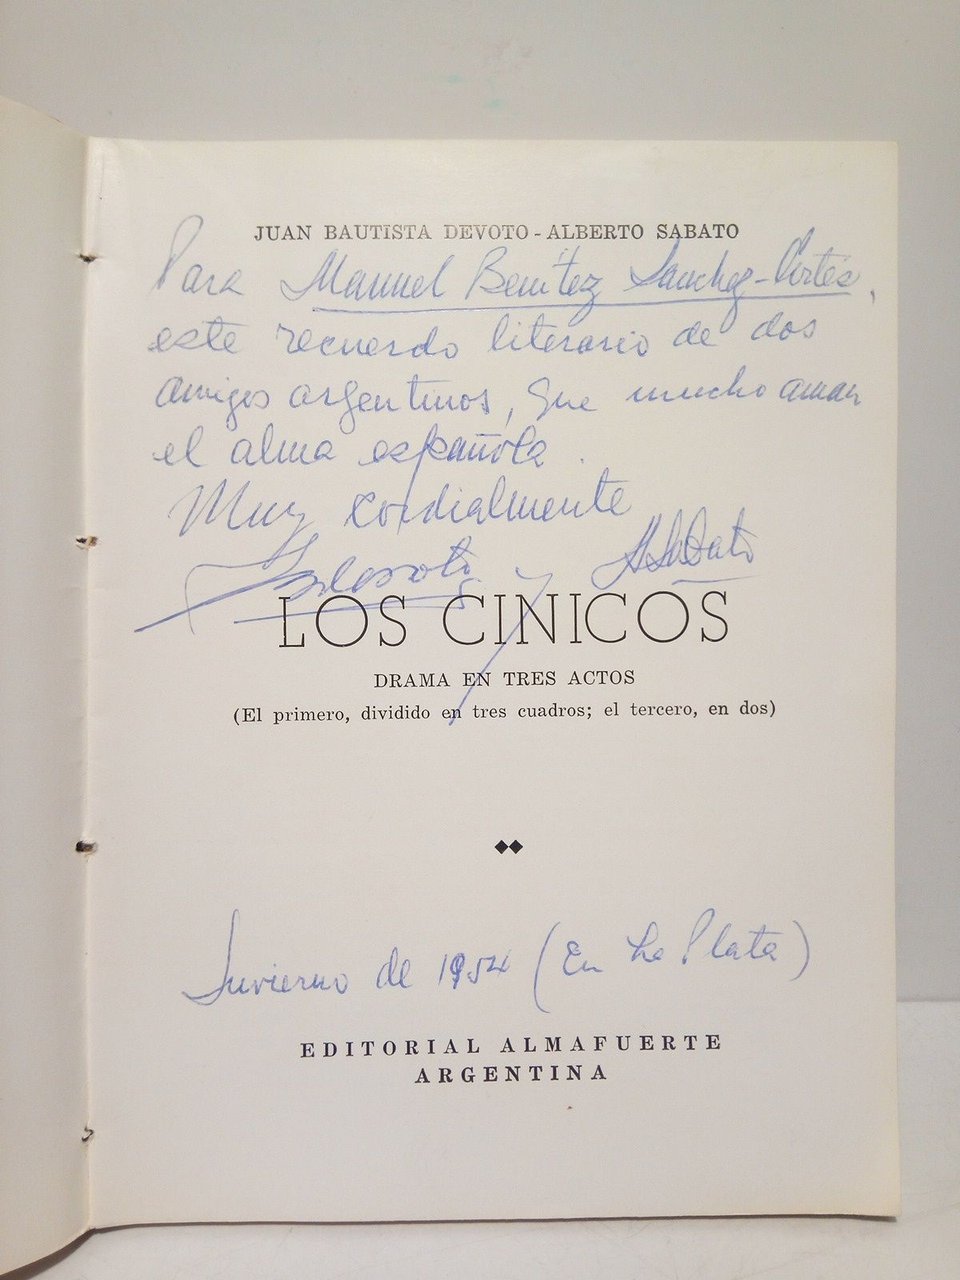 JUAN BAUTISTA DEVOTO - ALBERTO SABATO
Para Manuel Benítez Sanchez-Cortés,
este recuerdo literario de dos
amigos argentinos, que mucho aman
el alma española.
Muy cordialmente
y ASabato
LOS CINICOS
DRAMA EN TRES ACTOS
(El primero, dividido en tres cuadros; el tercero, en dos)
Invierno de 1954 (En La Plata)
EDITORIAL ALMAFUERTE
ARGENTINA